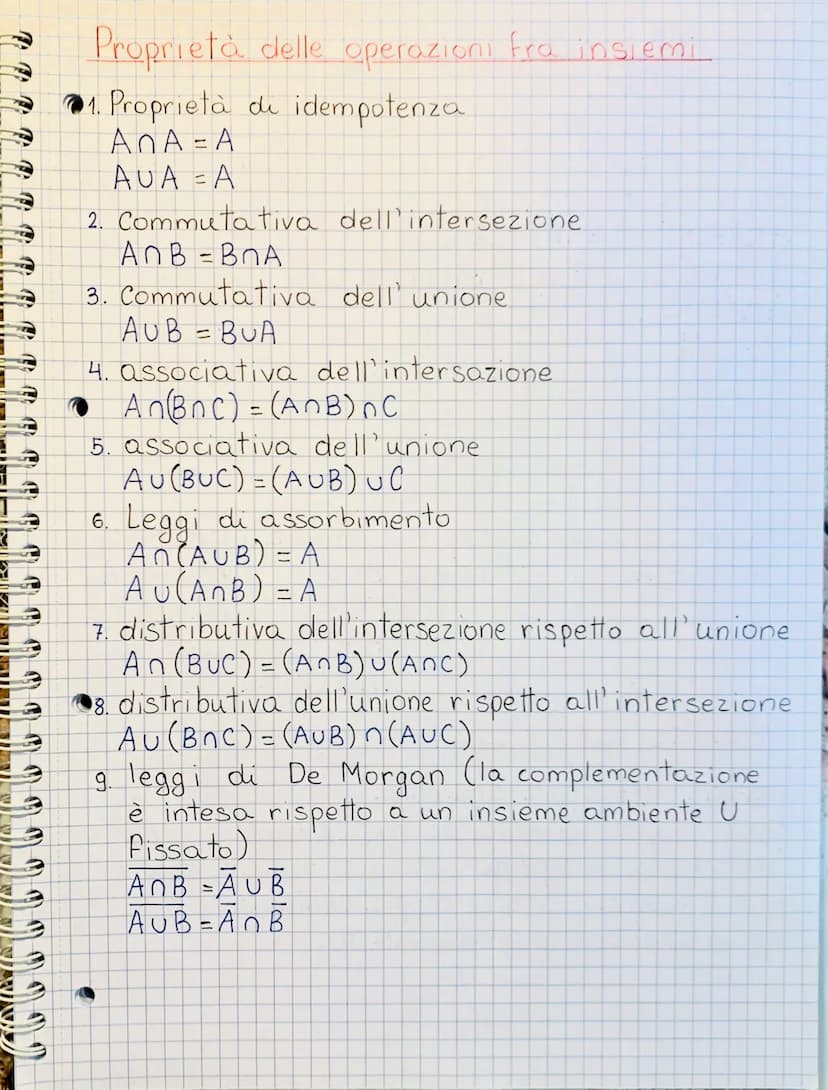 Proprietà delle operazioni fra insiemi
1. Proprietà di idempotenza
A∩A = A
A∪A = A
2. Commutativa dell'intersezione
A∩B = B∩A
3. Commutativa dell'unione
A∪B = B∪A
4. associativa dell'intersazione
A∩(B∩C) = (A∩B)∩C
5. associativa dell'unione
A∪(B∪C) = (A∪B)∪C
6. Leggi di assorbimento
A∩(A∪B) = A
A∪(A∩B) = A
7. distributiva dell'intersezione rispetto all'unione
A∩(B∪C) = (A∩B)∪(A∩C)
8. distributiva dell'unione rispetto all'intersezione
A∪(B∩C) = (A∪B)∩(A∪C)
9. leggi di De Morgan (la complementazione
è intesa rispetto a un insieme ambiente U
fissato)
A̅∩̅B̅ = A̅ ∪ B̅
A̅∪̅B̅ = A̅ ∩ B̅